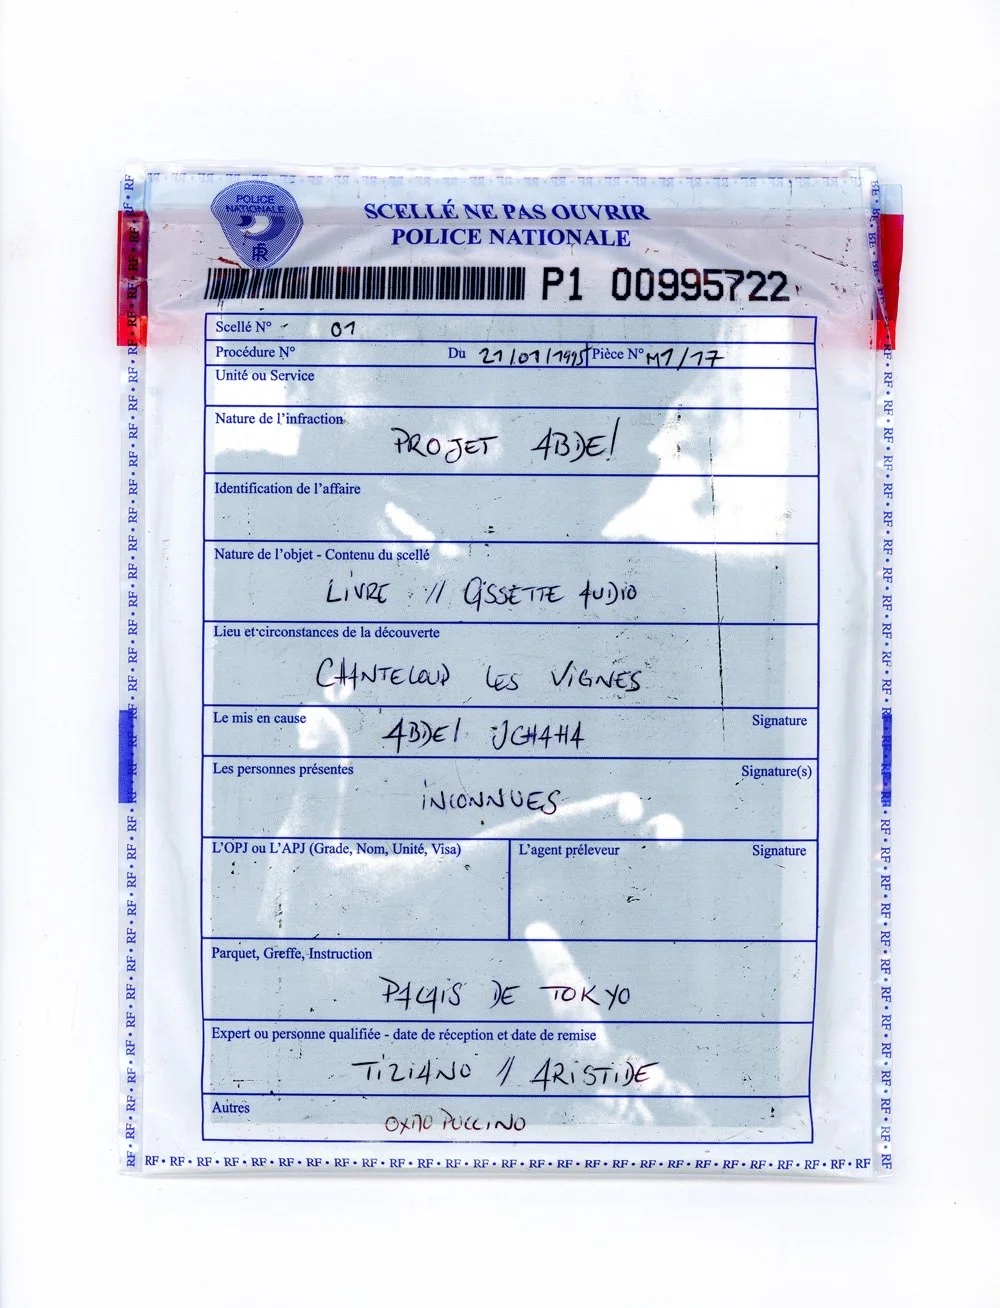 POLICE
NATIONALE
RF
SCELLÉ NE PAS OUVRIR
POLICE NATIONALE
P1 00995722
Scellé N° 01
Procédure N° Du 21/01/1995 Pièce N° M1/17
Unité ou Service
Nature de l'infraction
PROJET ABDEL
Identification de l'affaire
Nature de l'objet - Contenu du scellé
LIVRE // CASSETTE AUDIO
Lieu et circonstances de la découverte
CHANTELOUP LES VIGNES
Le mis en cause Signature
ABDEL ICHAHA
Les personnes présentes Signature(s)
INCONNUES
L'OPJ ou L'APJ (Grade, Nom, Unité, Visa) L'agent préleveur Signature
Parquet, Greffe, Instruction
PALAIS DE TOKYO
Expert ou personne qualifiée - date de réception et date de remise
TIZIANO // ARISTIDE
Autres
OXMO PUCCINO
RF • RF • RF • RF • RF • RF • RF • RF • RF • RF • RF • RF • RF • RF • RF • RF • RF • RF • RF • RF • RF • RF • RF • RF • RF • RF • RF